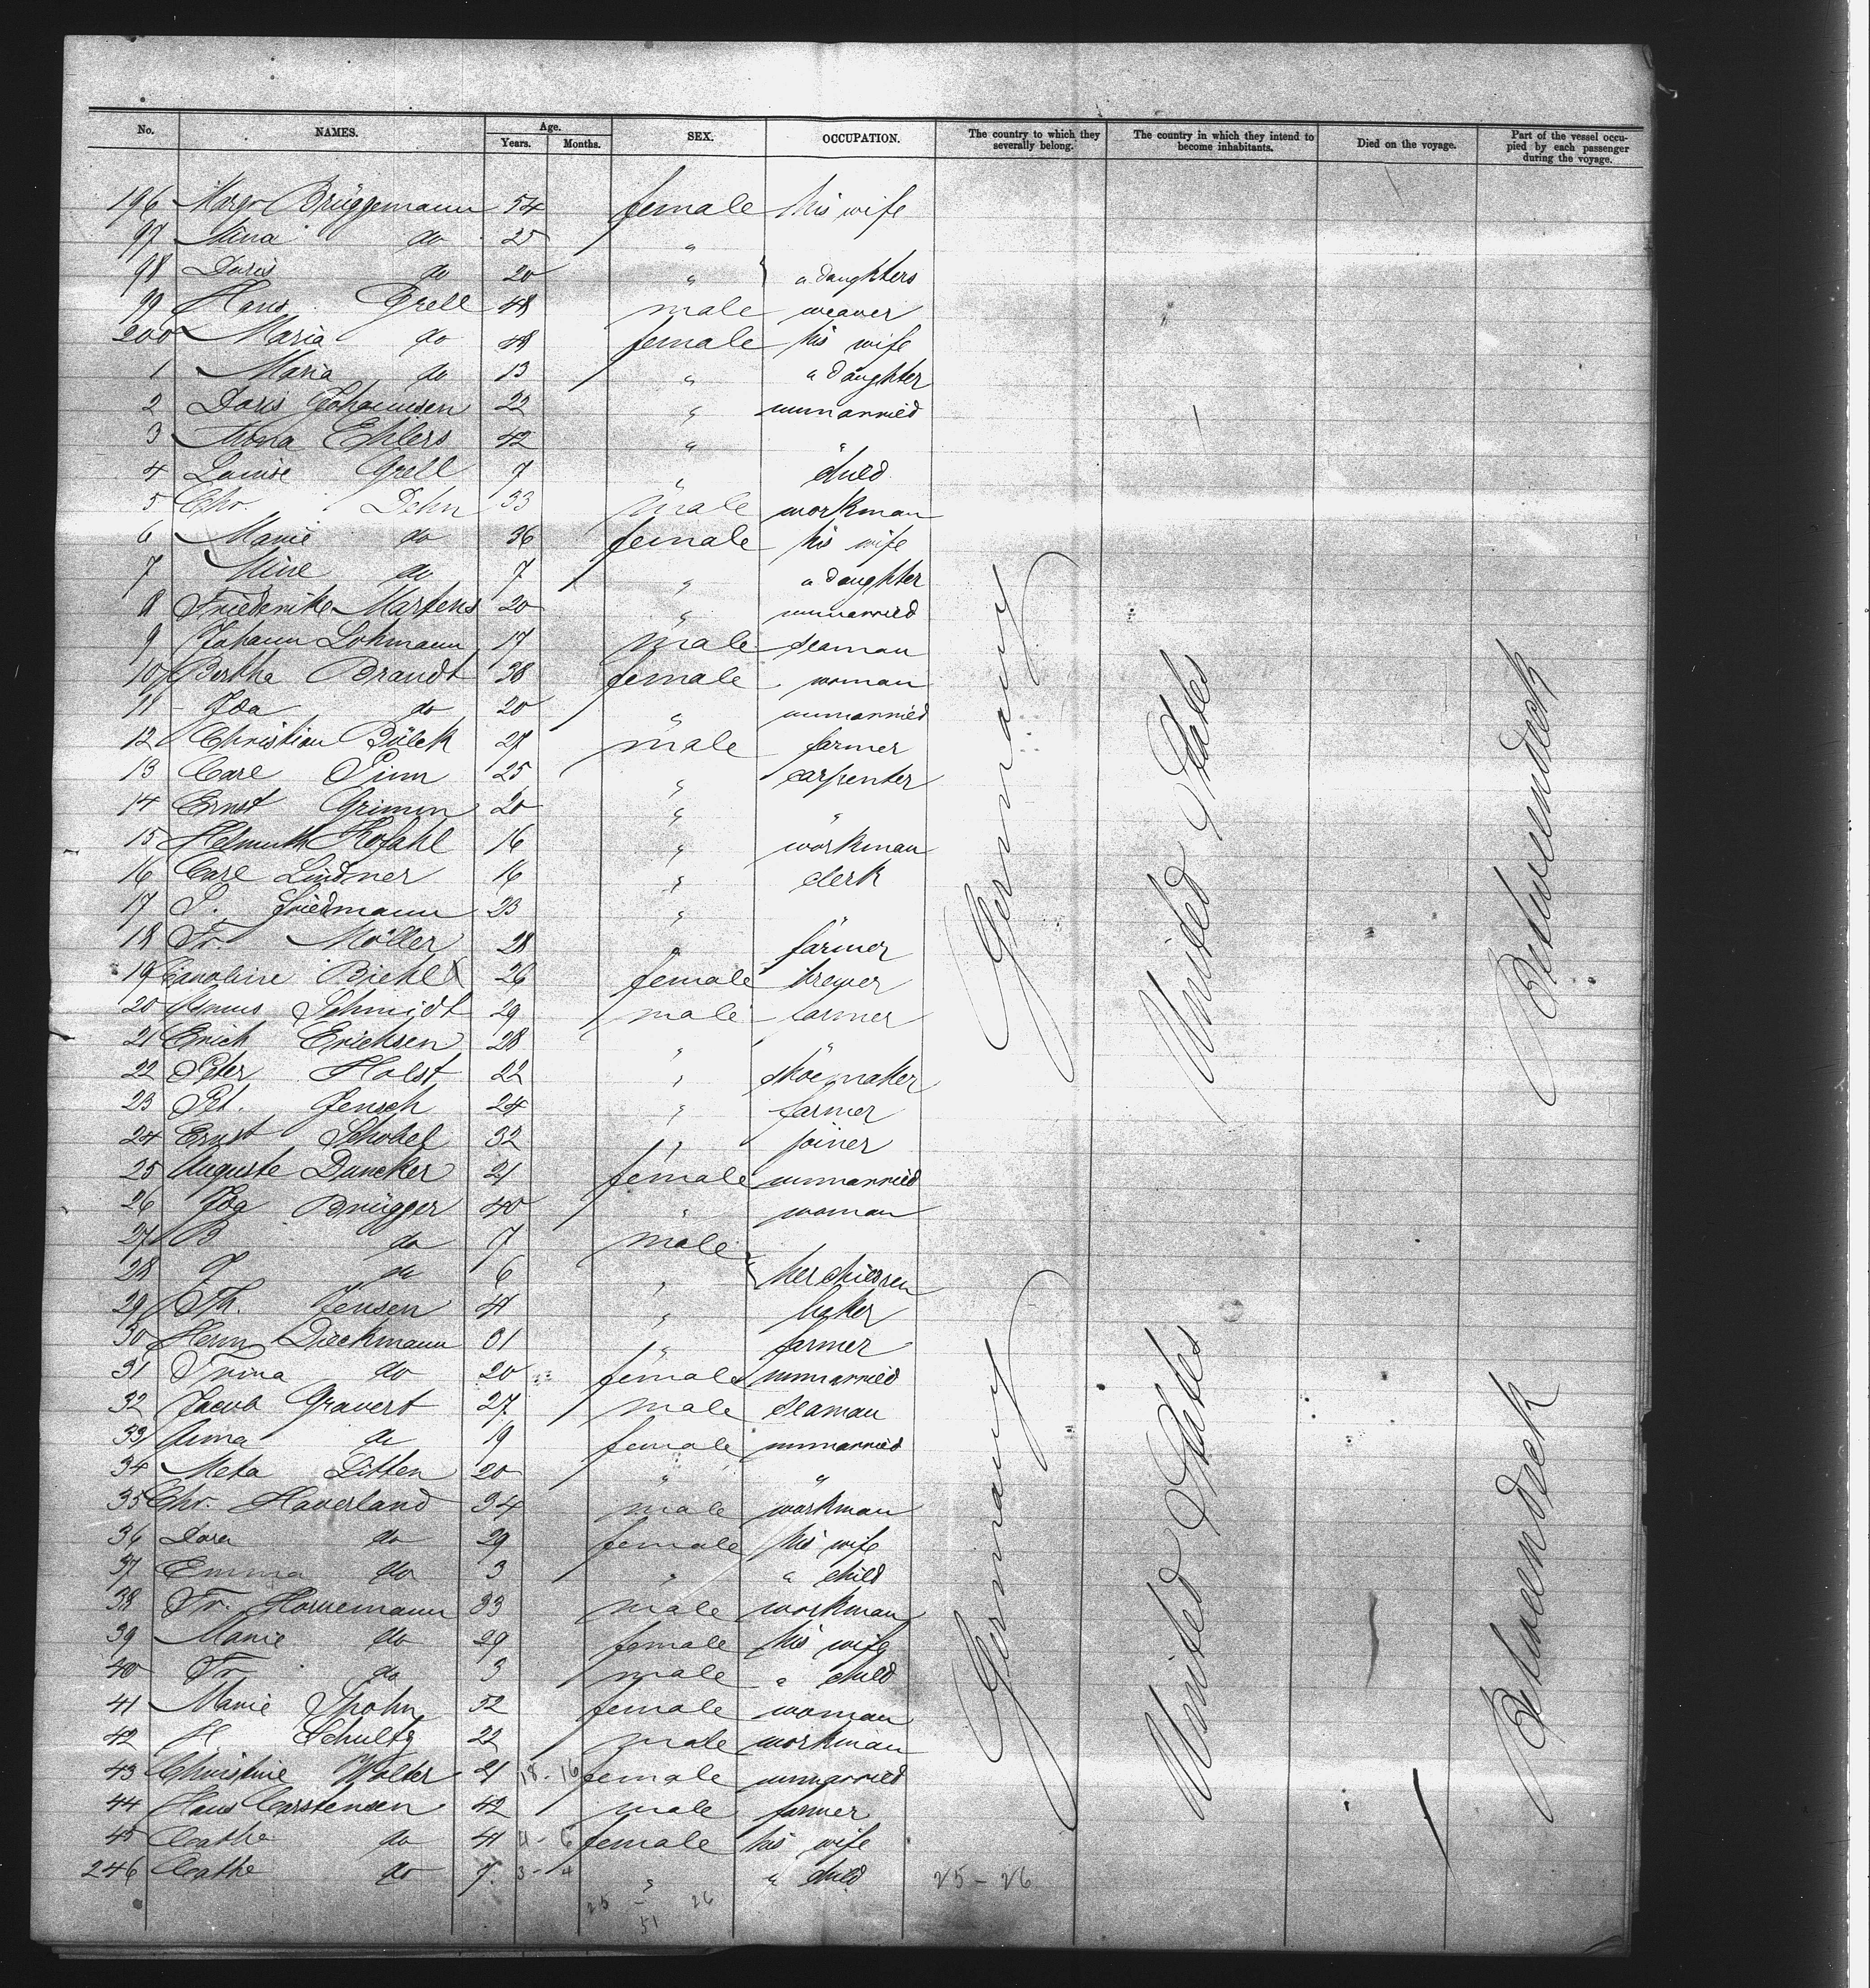 No. NAMES. Age. Years. Months. SEX. OCCUPATION. The country to which they severally belong. The country in which they intend to become inhabitants. Died on the voyage. Part of the vessel occupied by each passenger during the voyage.
196 Margr Brüggemann 54 female his wife
97 Mina do 25 "
98 Doris do 20 " a daughters
99 Hans Grell 48 male weaver
200 Maria do 48 female his wife
1 Maria do 13 " a daughter
2 Doris Johannsen 22 " unmarried
3 Ehlers 42 " "
4 Louise Grell 7 " child
5 Chr. Dehn 33 male workman
6 Marie do 36 female his wife
7 Mine do 7 " a daughter
8 Friederike Martens 20 " unmarried
9 Johann Lohmann 17 male seaman
10 Bertha Brandt 38 female woman
11 Ida do 20 " unmarried
12 Christian Bülck 27 male farmer
13 Carl 25 " carpenter
14 Ernst Grimm 20 " "
15 Helmuth Kofahl 16 " workman
16 Carl Lindner 16 " clerk
17 Friedmann 23 " "
18 Fr. Möller 28 " farmer
19 Caroline Biehl 26 female brewer
20 Asmus Schmidt 29 male farmer
21 Erich Erichsen 28 " "
22 Peter Holst 22 " shoemaker
23 Pet. Jensch 24 " farmer
24 Ernst 32 " joiner
25 Auguste Duncker 21 female unmarried
26 Ida Brügger 40 " woman
27 B do 7 male
28 do 6 " her children
29 Th. Jensen 41 " baker
30 Herm Dieckmann 61 " farmer
31 Trina do 20 female unmarried
32 Jacob Gravert 27 male seaman
33 Anna do 19 female unmarried
34 Meta Litten 20 " "
35 Chr. Haverland 34 male workman
36 Dora do 29 female his wife
37 Emma do 3 " a child
38 Fr. Hornemann 33 male workman
39 Marie do 29 female his wife
40 Fr. do 3 male a child
41 Marie Spohn 52 female woman
42 H. Schultz 22 male workman
43 Christine Wolter 21 18 - 16 female unmarried
44 Hans Carstensen 42 male farmer
45 Cathe do 41 4 - 6 female his wife
246 Cathe do 7 3 - 4 " a child 25 - 26
25 - 26
51
Germany
United States
Betweendeck
Germany
United States
Betweendeck